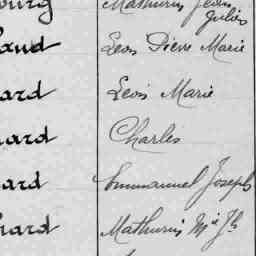 ourg Mathurin Jean
Julien
aud Léon Pierre Marie
ard Léon Marie
ard Charles
ard Emmanuel Joseph
ard Mathurin Mie Jh